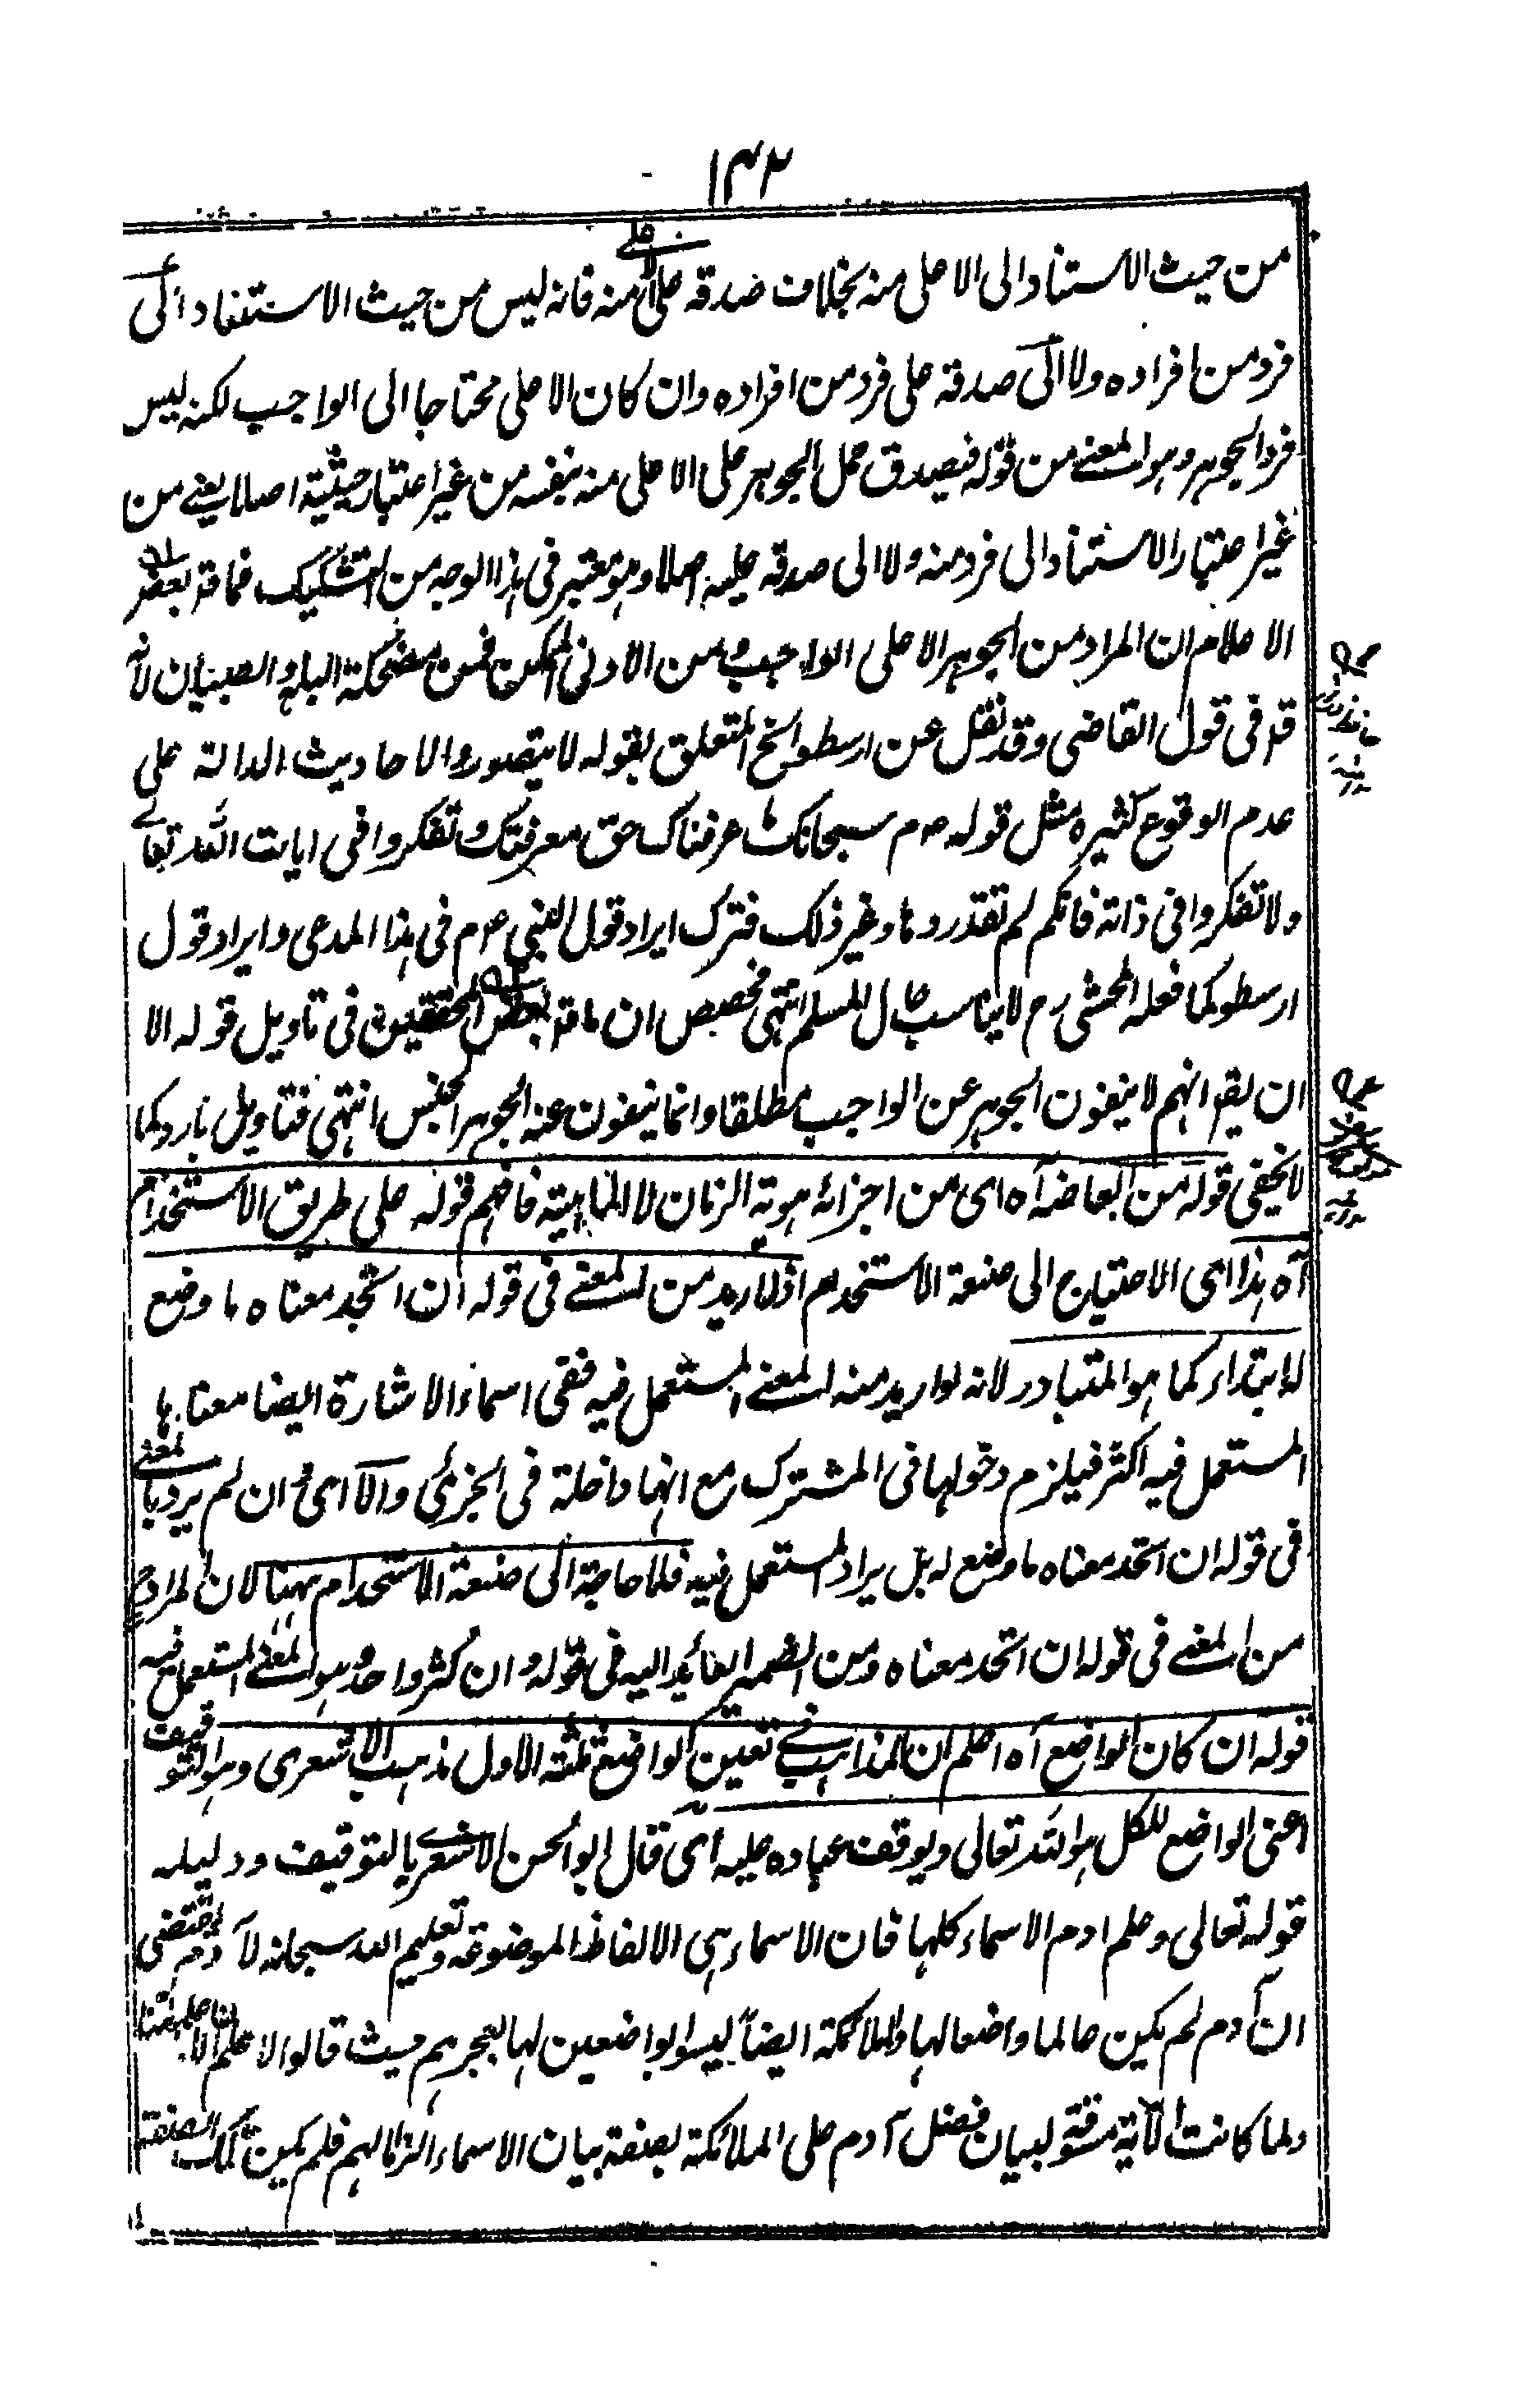 ١٤٢
من حيث الاستناد الى الاعلى منه بخلاف صدقه على الاعلى منه فانه ليس من حيث الاستناد الى
فرد من افراده ولا الى صدقه على فرد من افراده وان كان الاعلى محتاجا الى الواجب لكنه ليس
فرد الجوهر وهو المعنى من قوله فيصدق حمل الجوهر على الاعلى منه بنفسه من غير اعتبار حيثية اصلا يعنى من
غير اعتبار الاستناد الى فرد منه ولا الى صدقه عليه اصلا وهو معتبر فى هذا الوجه من التشكيك فما قد بعض
الاعلام ان المراد من الجوهر الاعلى الواجب ومن الادنى الممكن فمن مضحكة البله والصبيان لانه
قد فى قول القاضى وقد نقل عن ارسطو الخ المتعلق بقوله لا يتصور والاحاديث الدالة على
عدم الوقوع كثيره مثل قوله صوم سبحانك ما عرفناك حق معرفتك وتفكروا فى ايات الله تعالى
ولا تفكروا فى ذاته فانكم لم تقدروها وغير ذلك فترك ايراد قول النبى صوم فى هذا المدعى وايراد قول
ارسطو كما فعله المحشى رح لا يناسب بحال المسلم انتهى مخصص ان ما قد بعض المحققين فى تاويل قوله الا
ان يقم انهم لا ينفون الجوهر عن الواجب مطلقا وانما ينفون عنه الجوهر الجنس انتهى فتاويل بارد كما
لا يخفى قوله من ابعاضه آه اى من اجزائه هوية الزمان لا الماهية فافهم قوله على طريق الاستخدام
آه هذا اى الاحتياج الى صنعة الاستخدام اذا اريد من المعنى فى قوله ان اتحد معناه ما وضع
له ابتداء كما هو المتبادر لانه لو اريد منه المعنى المستعمل فيه ففى اسماء الاشارة ايضا معناها
المستعمل فيه اكثر فيلزم دخولها فى المشترك مع انها داخلة فى الجزئى والا اى وان لم يرد بالمعنى
فى قوله ان اتحد معناه ما وضع له بل يراد المستعمل فيه فلا حاجة الى صنعة الاستخدام ههنا لان المراد ح
من المعنى فى قوله ان اتحد معناه ومن الضمير العائد اليه فى قوله وان كثر واحد وهو المعنى المستعمل فيه
قوله ان كان الواضع آه اعلم ان المذاهب فى تعين الواضع ثلثة الاول مذهب الاشعرى وهو التوقيف
اعنى الواضع للكل هو الله تعالى ويوقف عباده عليه اى قال ابو الحسن الاشعرى بالتوقيف ودليله
قوله تعالى وعلم ادم الاسماء كلها فان الاسماء هى الالفاظ الموضوعة وتعليم الله سبحانه لآدم يقتضى
ان آدم لم يكن عالما واضعا لها والملائكة ايضا ليسوا بواضعين لها لعجزهم حيث قالوا لا علم لنا الا ما علمتنا
ولما كانت الآية مسوقة لبيان فضل آدم على الملائكة بصفة بيان الاسماء الزالهم فلم يكن تلك الصفة